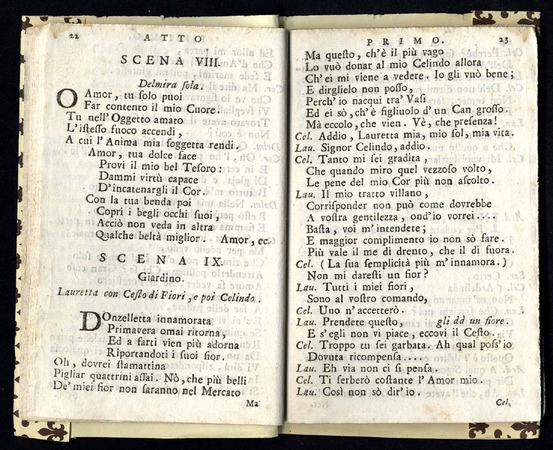 22 ATTO
SCENA VIII.
Delmira sola.
O Amor, tu solo puoi
Far contento il mio Cuore.
Tu nell'Oggetto amato
L'istesso fuoco accendi,
A cui l'Anima mia soggetta rendi.
Amor, tua dolce face
Provi il mio bel Tesoro:
Dammi virtù capace
D'incatenargli il Cor.
Con la tua benda poi
Copri i begli occhi suoi,
Acciò non veda in altra
Qualche beltà miglior. Amor, ec.
SCENA IX.
Giardino.
Lauretta con Cesto di Fiori, e poi Celindo.
Donzelletta innamorata
Primavera omai ritorna,
Ed a farti vien più adorna
Riportandoti i suoi fior.
Oh, dovrei stamattina
Pigliar quattrini assai. Nò, che più belli
De' miei fior non faranno nel Mercato
Ma
PRIMO. 23
Ma questo, ch'è il più vago
Lo vuò donar al mio Celindo allora
Ch'ei mi viene a vedere. Io gli vuò bene;
E dirglielo non posso,
Perch'io nacqui tra' Vasi
Ed ei sò, ch'è figliuolo d'un Can grosso.
Mà eccolo, che vien. Vè, che presenza!
Cel. Addio, Lauretta mia, mio sol, mia vita.
Lau. Signor Celindo, addio.
Cel. Tanto mi sei gradita,
Che quando miro quel vezzoso volto,
Le pene del mio Cor più non ascolto.
Lau. Il mio tratto villano,
Corrisponder non può come dovrebbe
A vostra gentilezza, ond'io vorrei....
Basta, voi m'intendete;
E maggior complimento io non sò fare.
Più vale il me di drento, che il di fuora.
Cel. (La sua semplicità più m'innamora.)
Non mi daresti un fior?
Lau. Tutti i miei fiori,
Sono al vostro comando,
Cel. Uno n'accetterò.
Lau. Prendete questo, gli dà un fiore.
E s'egli non vi piace, eccovi il Cesto.
Cel. Troppo tu sei garbata. Ah qual poss'io
Dovuta ricompensa....
Lau. Eh via non ci si pensa.
Cel. Ti serberò costante l'Amor mio.
Lau. Così non sò dir'io.
Cel.